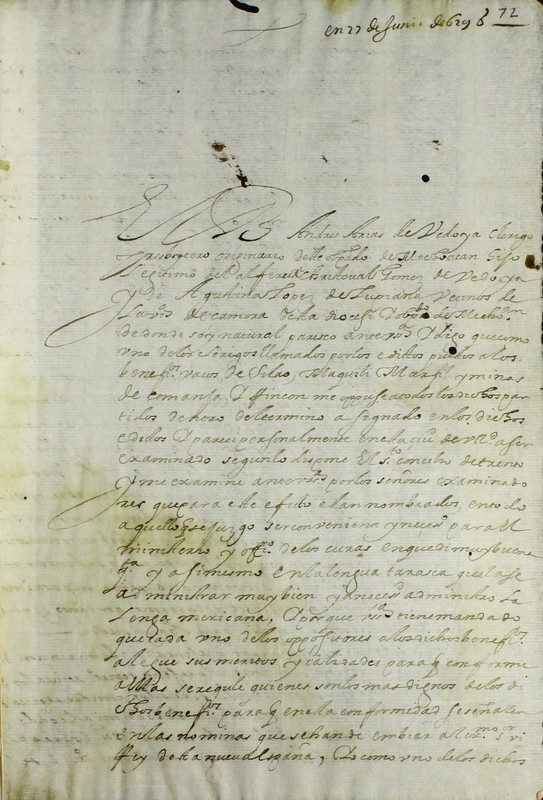 72
en 27 de Junio de 629
El Br Andres Arias de Vedoya clerigo
presvitero originario deste obpado de Mechoacan hijo
legitimo del alferes christoval Gomez de Vedoya
y de Agustina Lopez de vecinos de
la villa de camora desta diocesi y obpdo de Mechon
de donde soy natural paresco ante vsa Y digo que como
vno delos clerigos llamados por los edictos puestos alos
benefios vacos de Silao, Maquili Marfil y minas
de comanja, Y Rincon me oppuse a todos los dichos par
tidos dentro del termino asignado en los dichos
edictos Y pareci personalmente en esta ciud de vllid a ser
examinado segun lo dispone El sto concilio de trento
y me examine ante vsa por los señores examinado
res que para este efeto estan nombrados, en todo
aquello q se juzgo ser conveniente y necesso para El
ministerio y offo de los curas en que di muy buena
qta y asimesmo en la lengua tarasca que la se
administrar muy bien y administro La
Lengua mexicana, Y porque vsa tiene mandado
que cada vno delos oppositores a los dichos benefios
alegue sus meritos y calidades para q conforme
a ellas se regule quienes son los mas dignos de los di
chos benefios para q en esta conformidad se señalen
en las nominas que se han de embiar al exmo sr vi
Rey desta nueva España, Yo como vno de los dichos